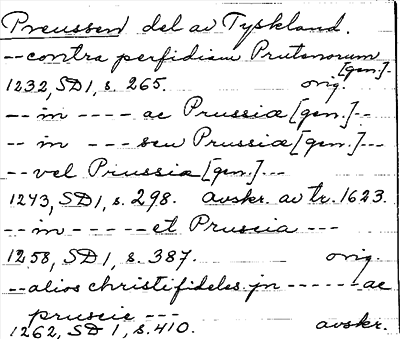 Preussen del av Tyskland.
-- contra perfidiam Prutenorum
[gen.].
1232, SD 1, s. 265. orig.
-- in ---- ac Prussiæ [gen.] --
-- in --- seu Prussiæ [gen.] ---
-- vel Prussiæ [gen.] ---
1243, SD 1, s. 298. avskr. av tr. 1623.
-- in ----- et Pruscia ---
1258, SD 1, s. 387. orig.
-- alios christifideles jn ------ ac
pruscie ---
1262, SD 1, s. 410. avskr.